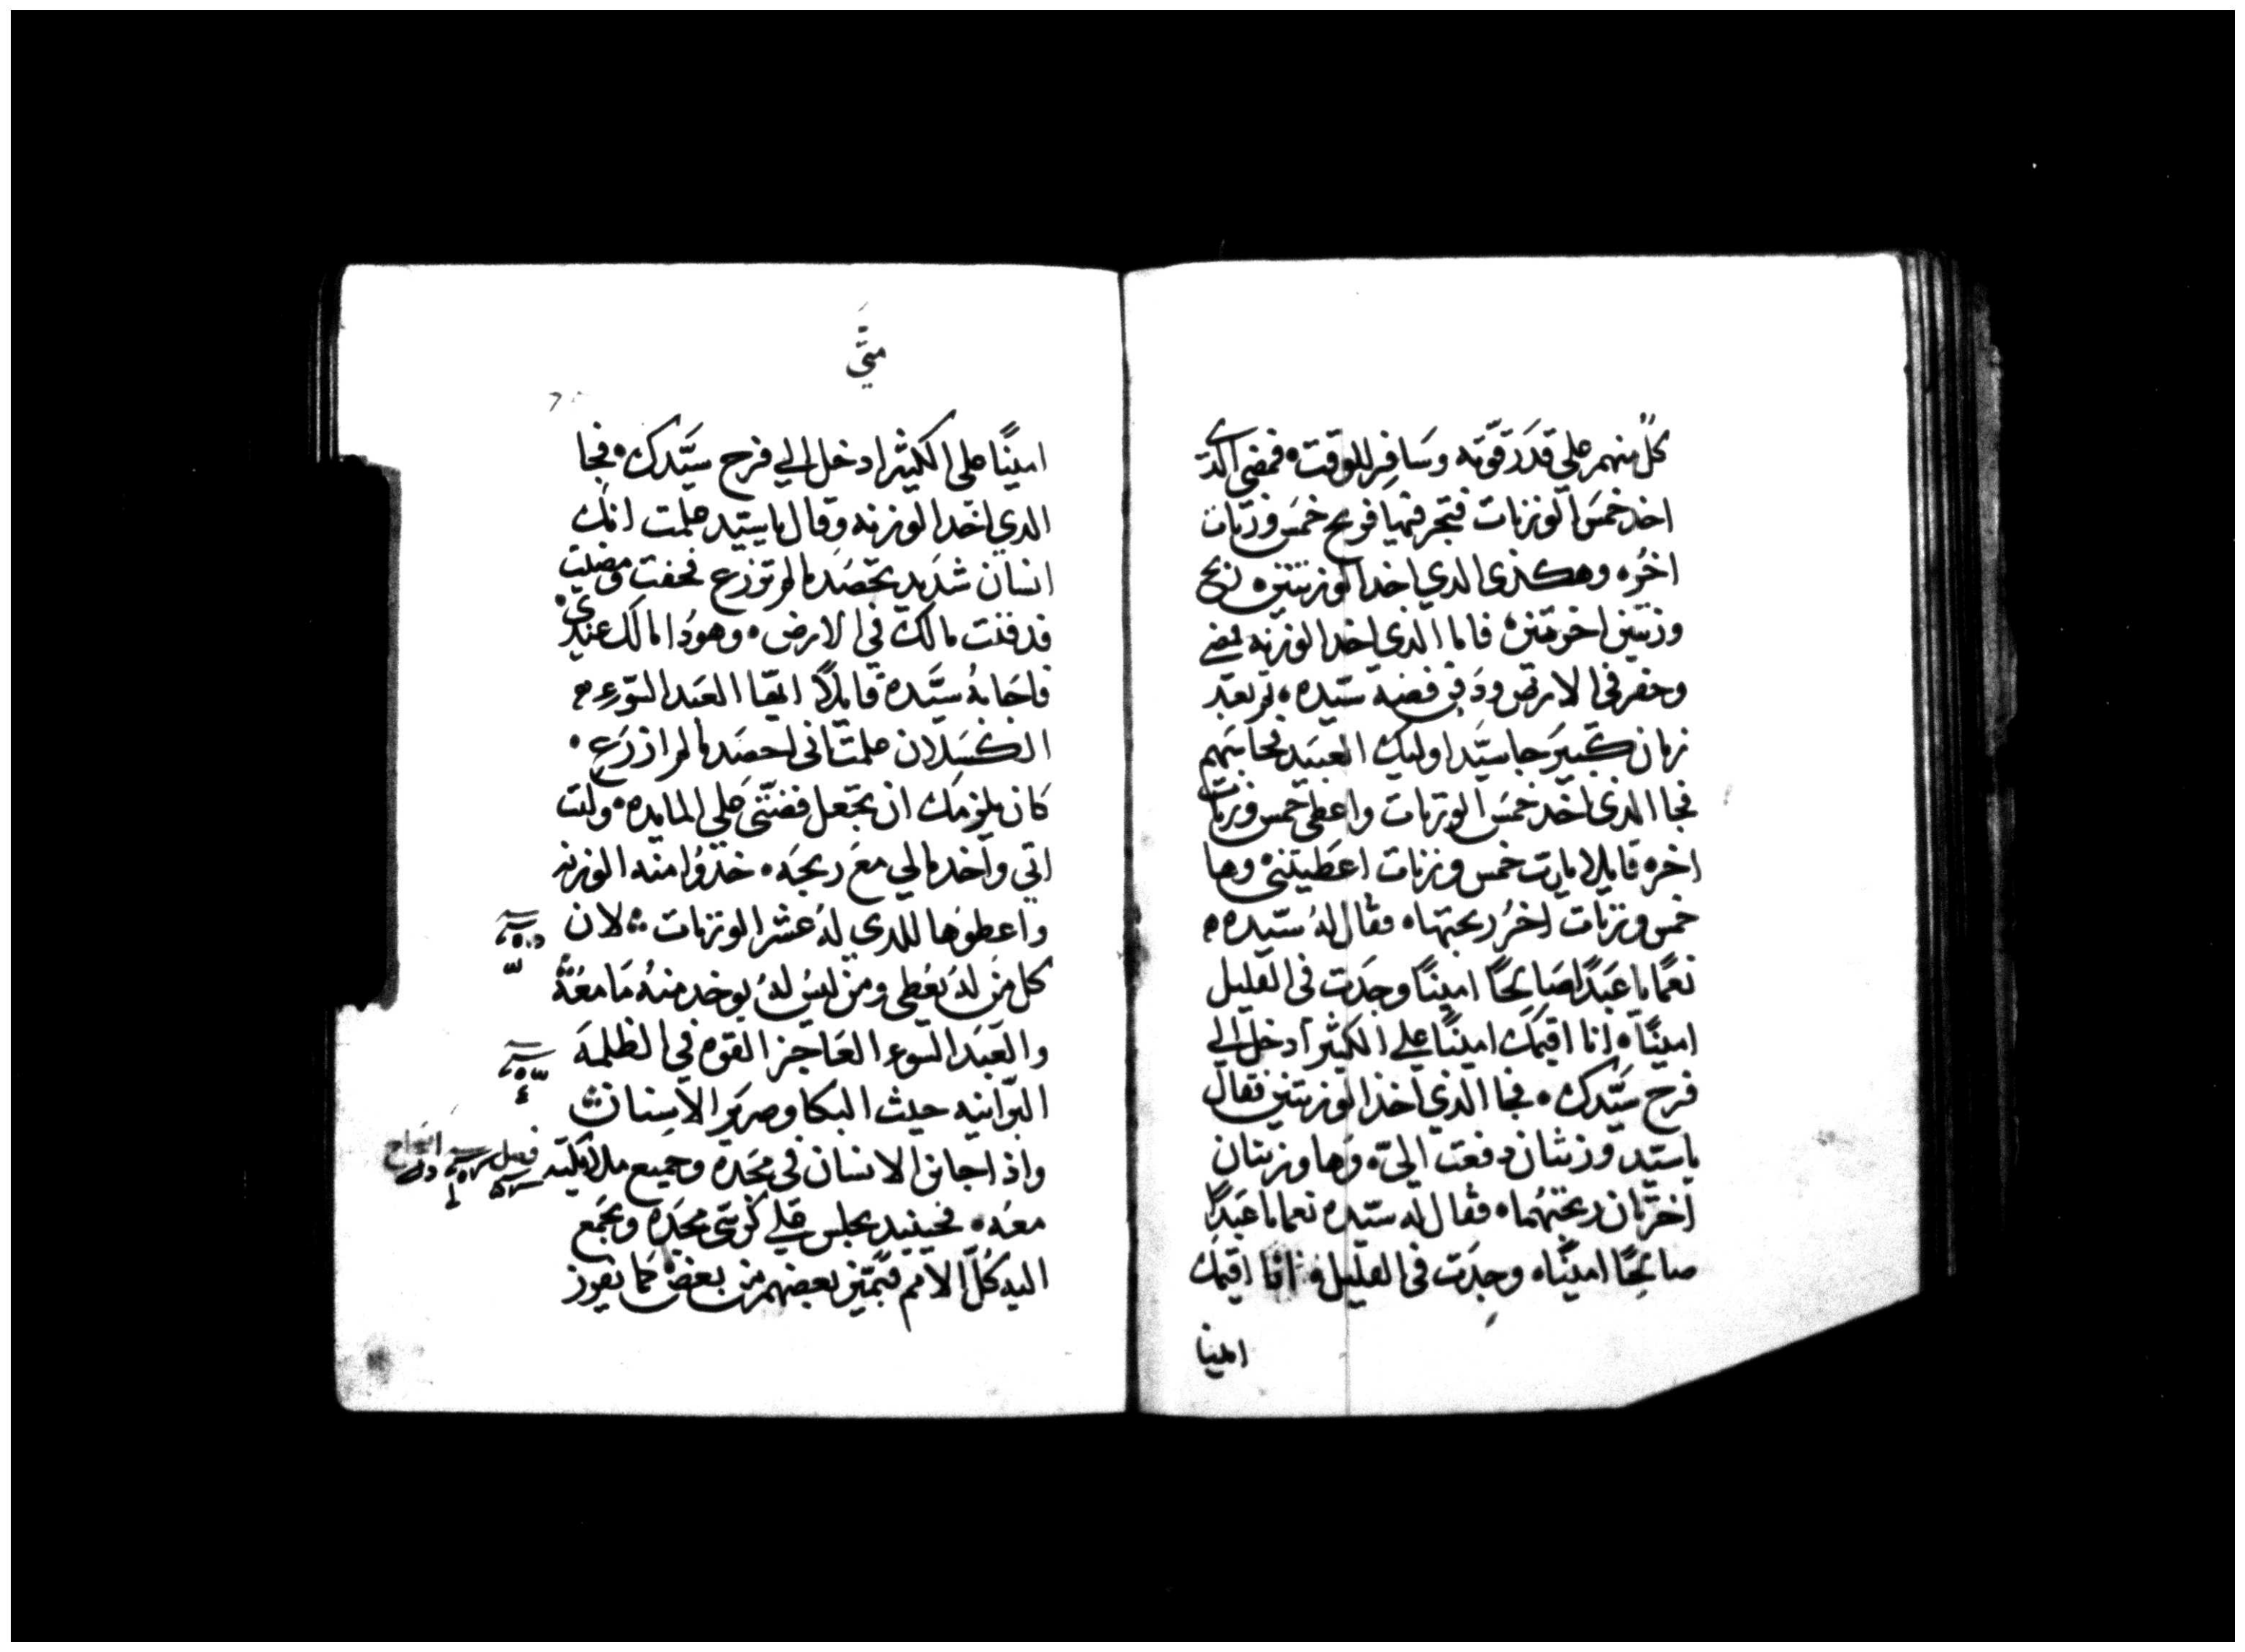 كلٌ منهم علي قدَر قوّته وسَافِر للوقت فمضى الدي
اخد خمسَ الوزنات فتجر فيها فربح خمسَ وزنات
اخرُه وهكذى الدي اخد الوزنتين ربح
وزنتين اخرتين فاما الدي اخد الوزنه فمضي
وحفر في الارض ودَفن فضة سيّده ثم بعَد
زمان كبيرَ جا سيَّد اوليك العبيَد فحاسَبهم
فجا الذى اخد خمسَ الوزنات واعطى خمس وزنات
اخره قايلا يارب خمس وزنات اعطيتنى وها
خمس وزنات اخرُ ربحتها فقال لهُ سيّده
نعمّا يا عَبدًا صَالحًا امينًا وجدَت في القليل
امينًا انا اقيمَك امينًا علي الكثير ادخل الي
فرح سيّدك فجا الذي اخذ الوزنتين فقال
يا سيّد وزنتان دفعت اليّ وَها وزنتان
اخرَتان ربحتهُما فقال له سيّده نعما يا عَبدًا
صالحًا امينًا وجدَت في القليل انا اقيمك
امينا
متّي
امينًا علي الكثير ادخل الي فرح سيَّدك فجا
الدي اخَد الوزنه وقال يا سيّد علمت انك
انسان شدَيد تحصَد ما لم توزرع فخفت ومضيت
فدفنت مالك في الارض وهودُا مالك عندي
فاجَابهُ سيَّده قايلاً ايهّا العَبد السّوء
الكسَلان علمت اني احصَد ما لم ازرَع
كان يلزمك ان تجَعل فضتّي علي المايده وكنت
اتي واخد مالي معَ ربحَه خدوُا منه الوزنه
واعطوُها للدي لهُ عَشر الوزنات لان
كل من لهُ يعُطى ومن ليسُ لهُ يوخد منهُ مَا معَهُ
والعَبَد السوء العَاجز القوه في الظلمةَ
البرّانيه حيث البكا وصريرَ الاسِنان
واذا جا ابن الانسان في مجَده وجميع ملايكته
معَه فحينيد يجلس علي كرُسّي مجدَه ويجَمع
اليه كلُ الامم فيمَيز بعضهم من بعض كما يفرز